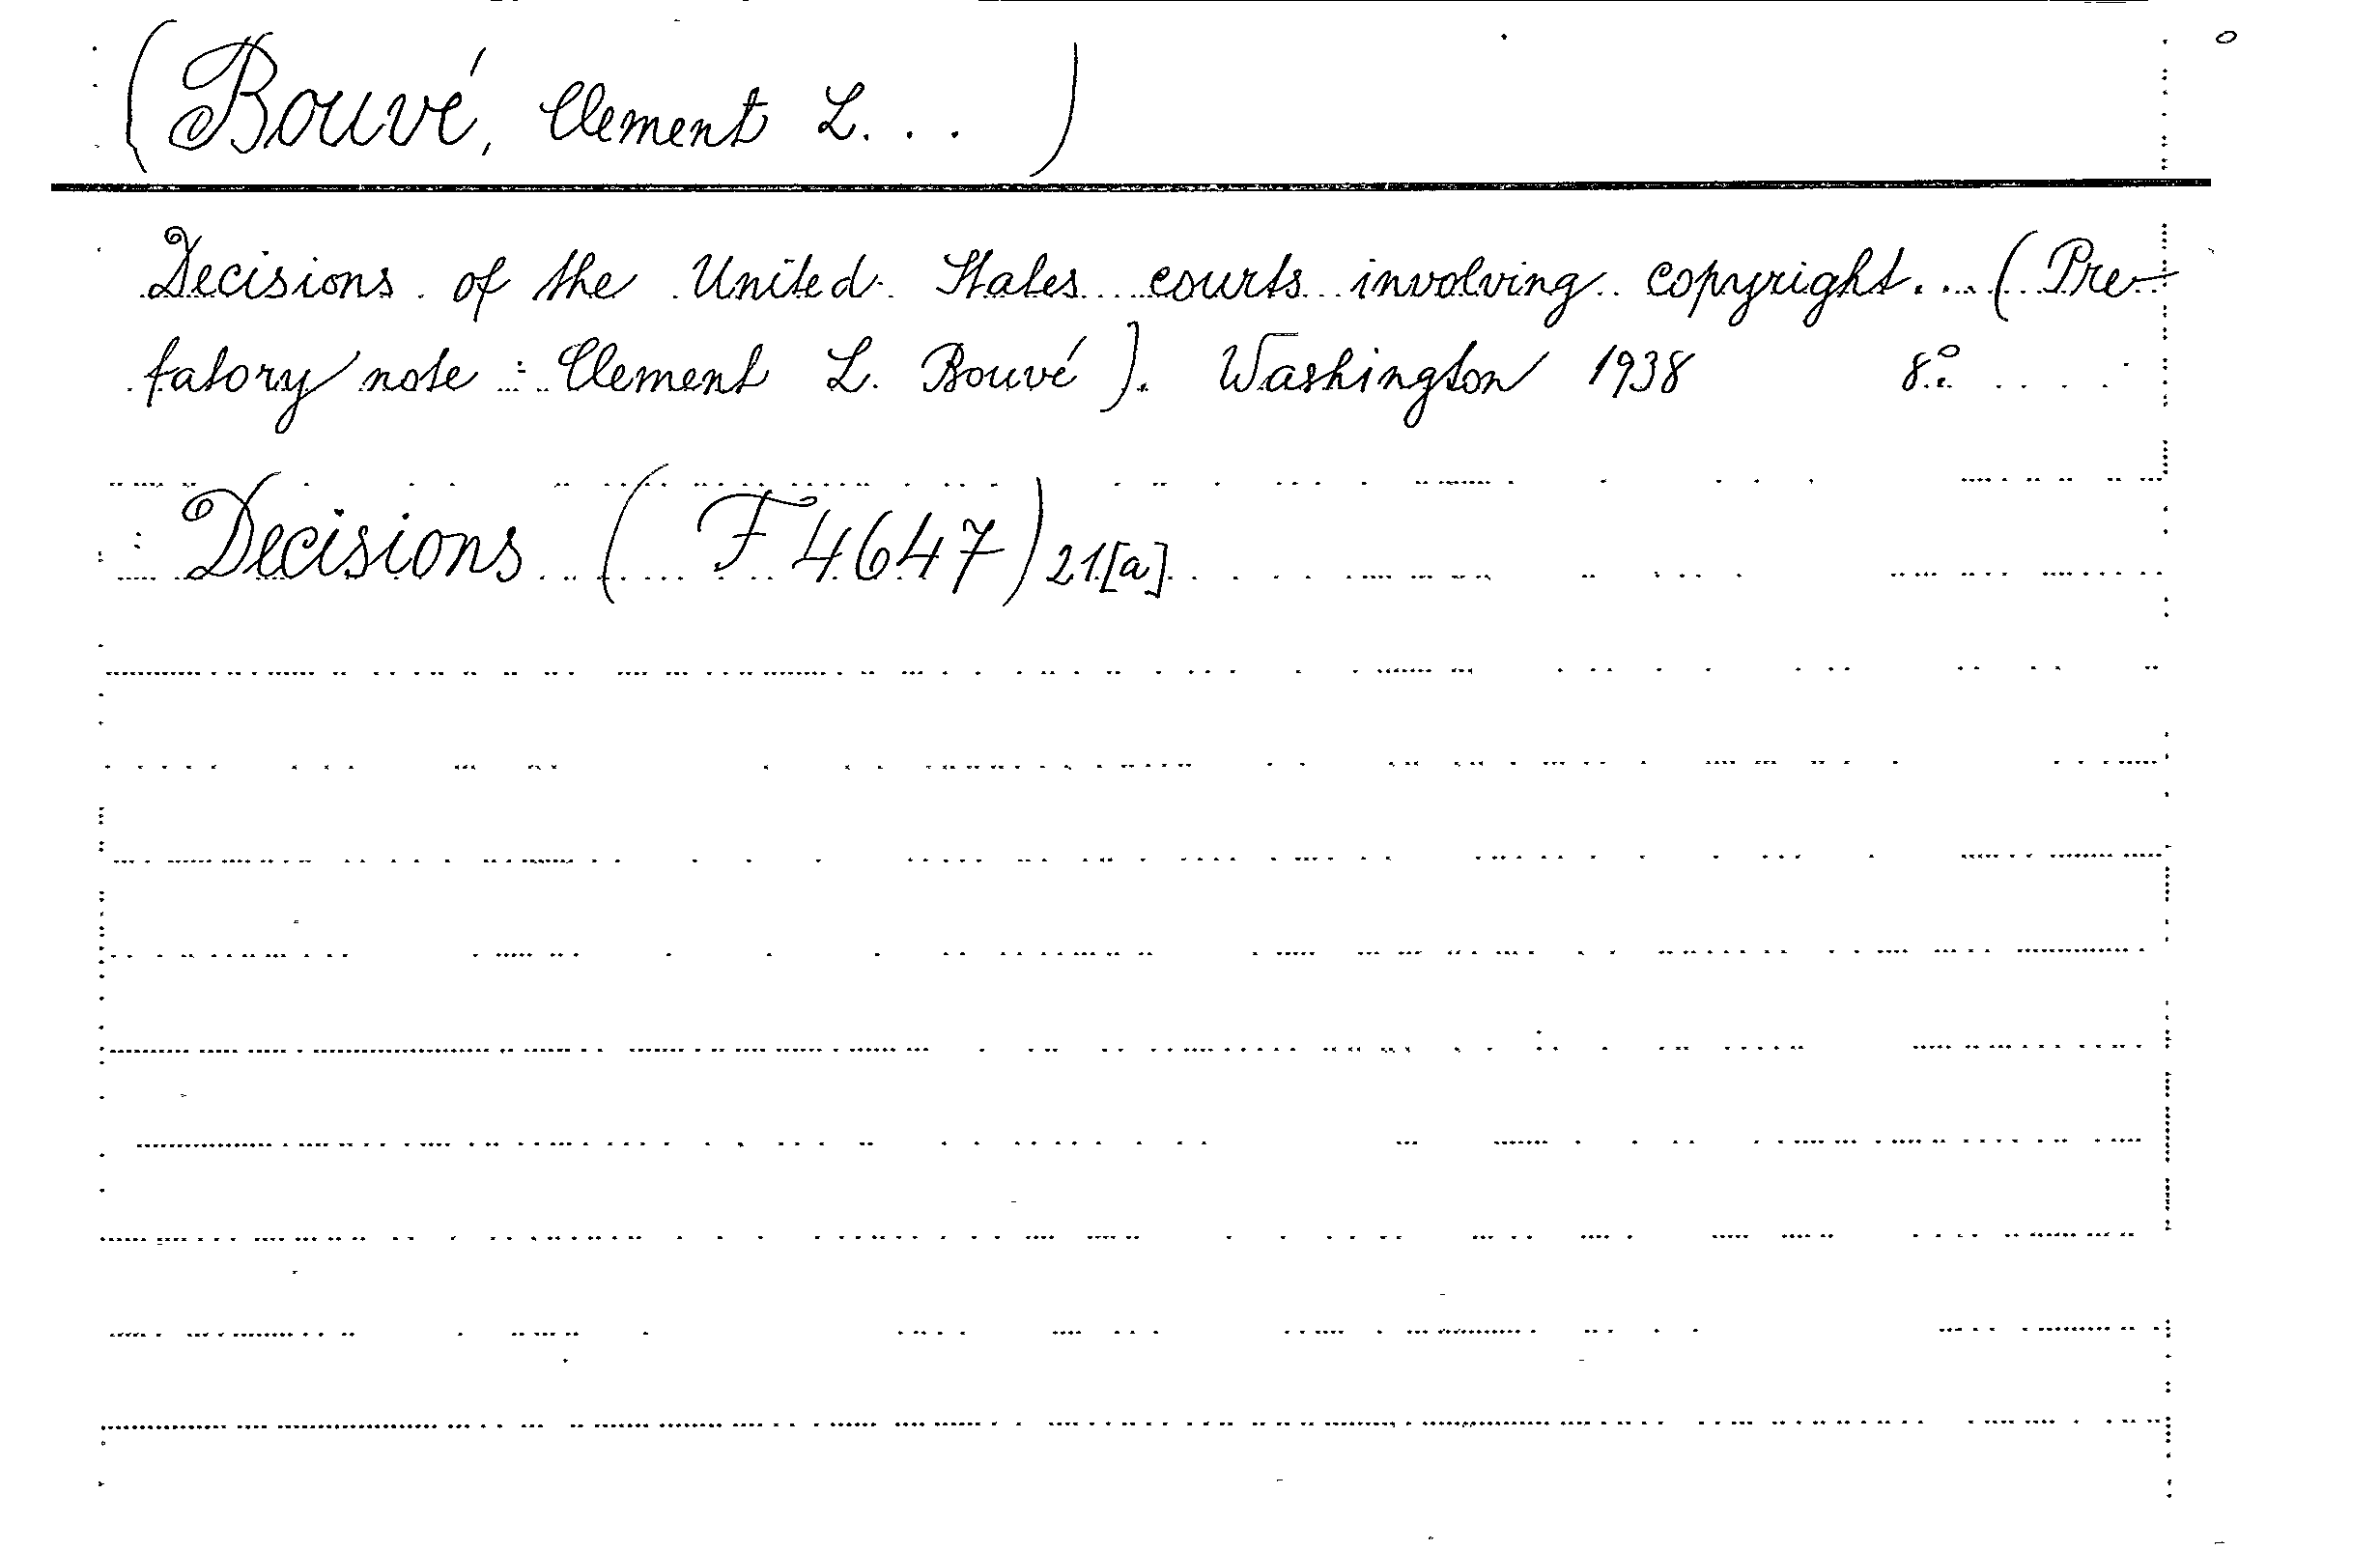 (Bouvé, Clement L. . . )
Decisions of the United States courts involving copyright... (Pre-
fatory note: Clement L. Bouvé). Washington 1938 8°
: Decisions (F 4647) 21[a]